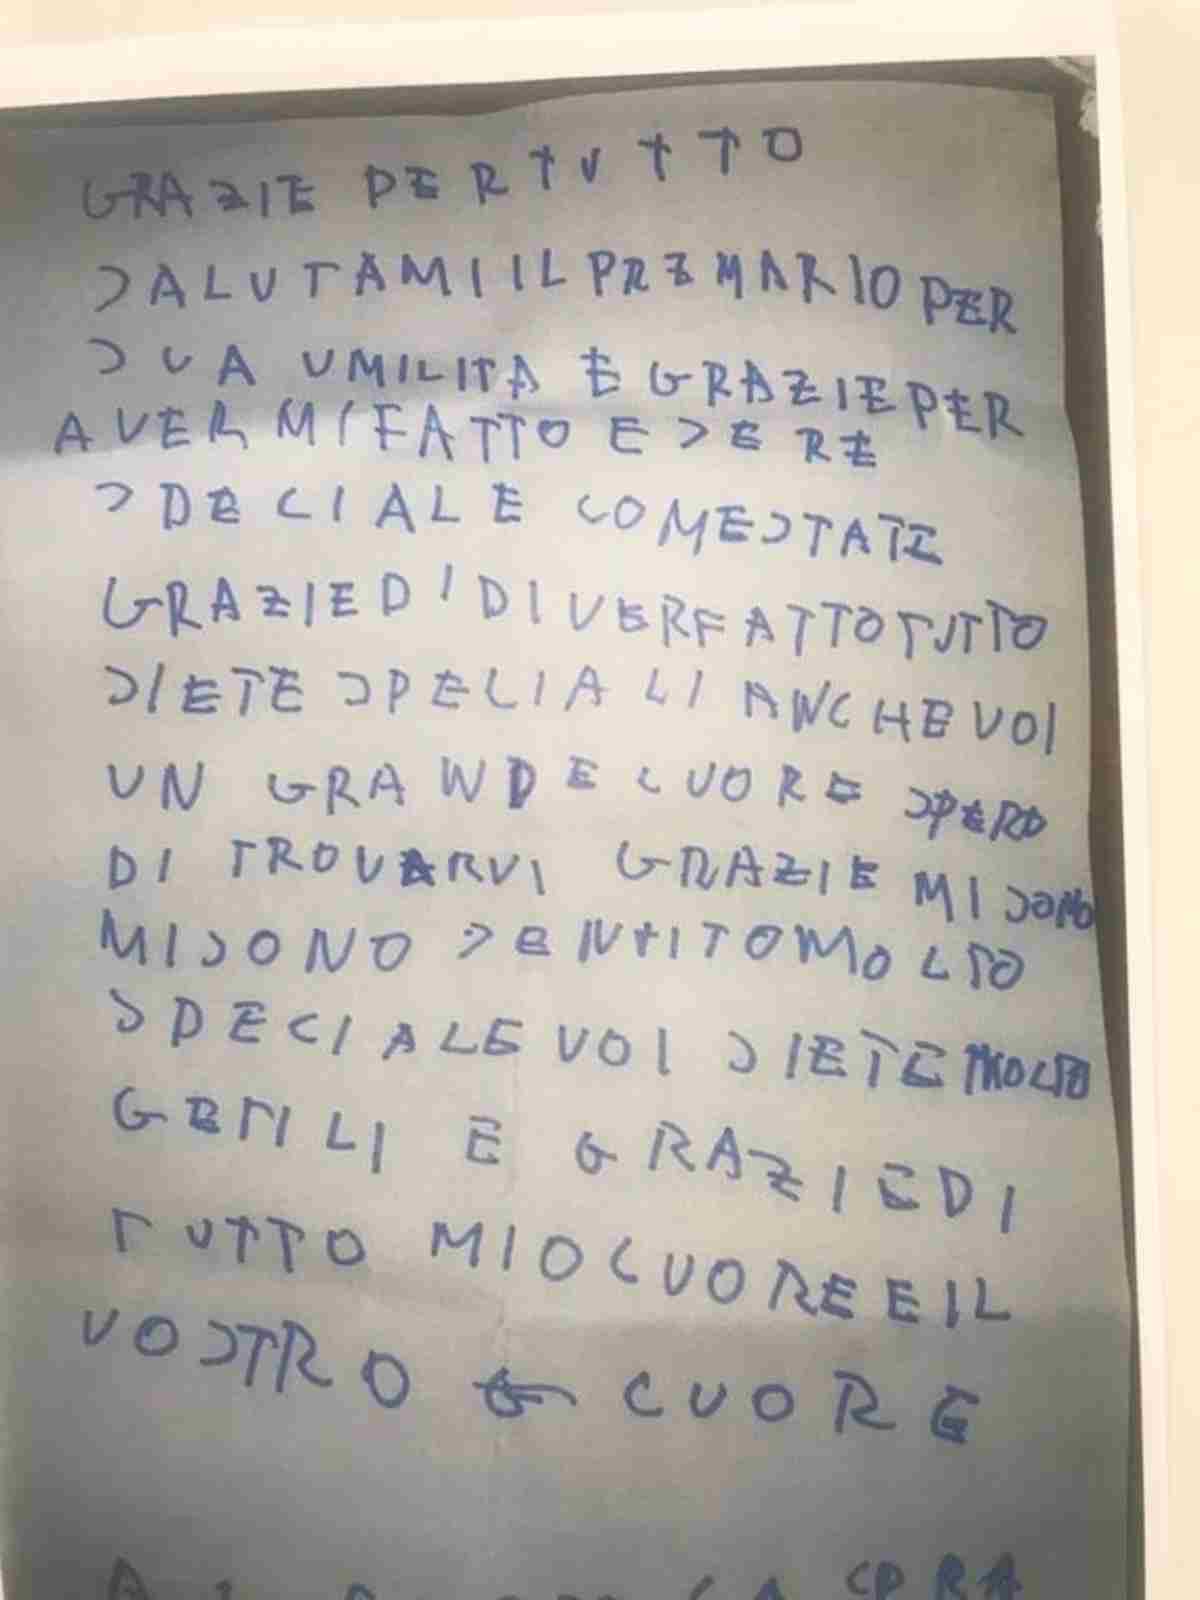 GRAZIE PER TUTTO
SALUTAMI IL PREMARIO PER
SUA UMILITA E GRAZIE PER
AVERMI FATTO ESERE
SPECIALE COME STATI
GRAZIE DI DIVER FATTO TUTTO
SIETE SPECIALI ANCHE VOI
UN GRANDE CUORE SPERO
DI TROVARVI GRAZIE MI SONO
MI SONO SENTITO MOLTO
SPECIALE VOI SIETE MOLTO
GETILI E GRAZIE DI
TUTTO MIO CUORE E IL
VOSTRO CUORE